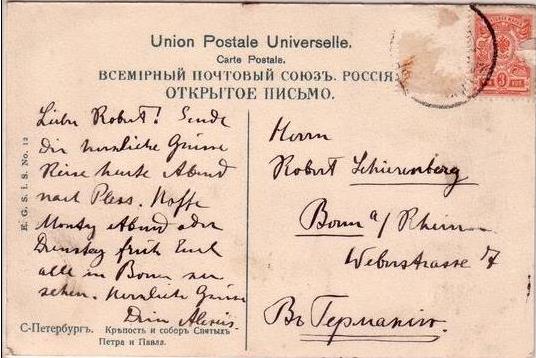 Union Postale Universelle.
Carte Postale.
ВСЕМІРНЫЙ ПОЧТОВЫЙ СОЮЗЪ. РОССІЯ.
ОТКРЫТОЕ ПИСЬМО.
Liebe Robert! Sende
dir herzliche Grüsse
Reise heute Abend
nach Hoffe
Abend oder
Dienstag früh Euch
alle in Bonn zu
sehen. Herzliche Grüsse
Dein Alexis
Herrn
Robert Schierenberg
Bonn a/ Rhein
Weberstrasse 7
Въ Германію.
E. G. S. I. S. No. 12
С-Петербургъ. Крѣпость и соборъ Святыхъ
Петра и Павла.
3